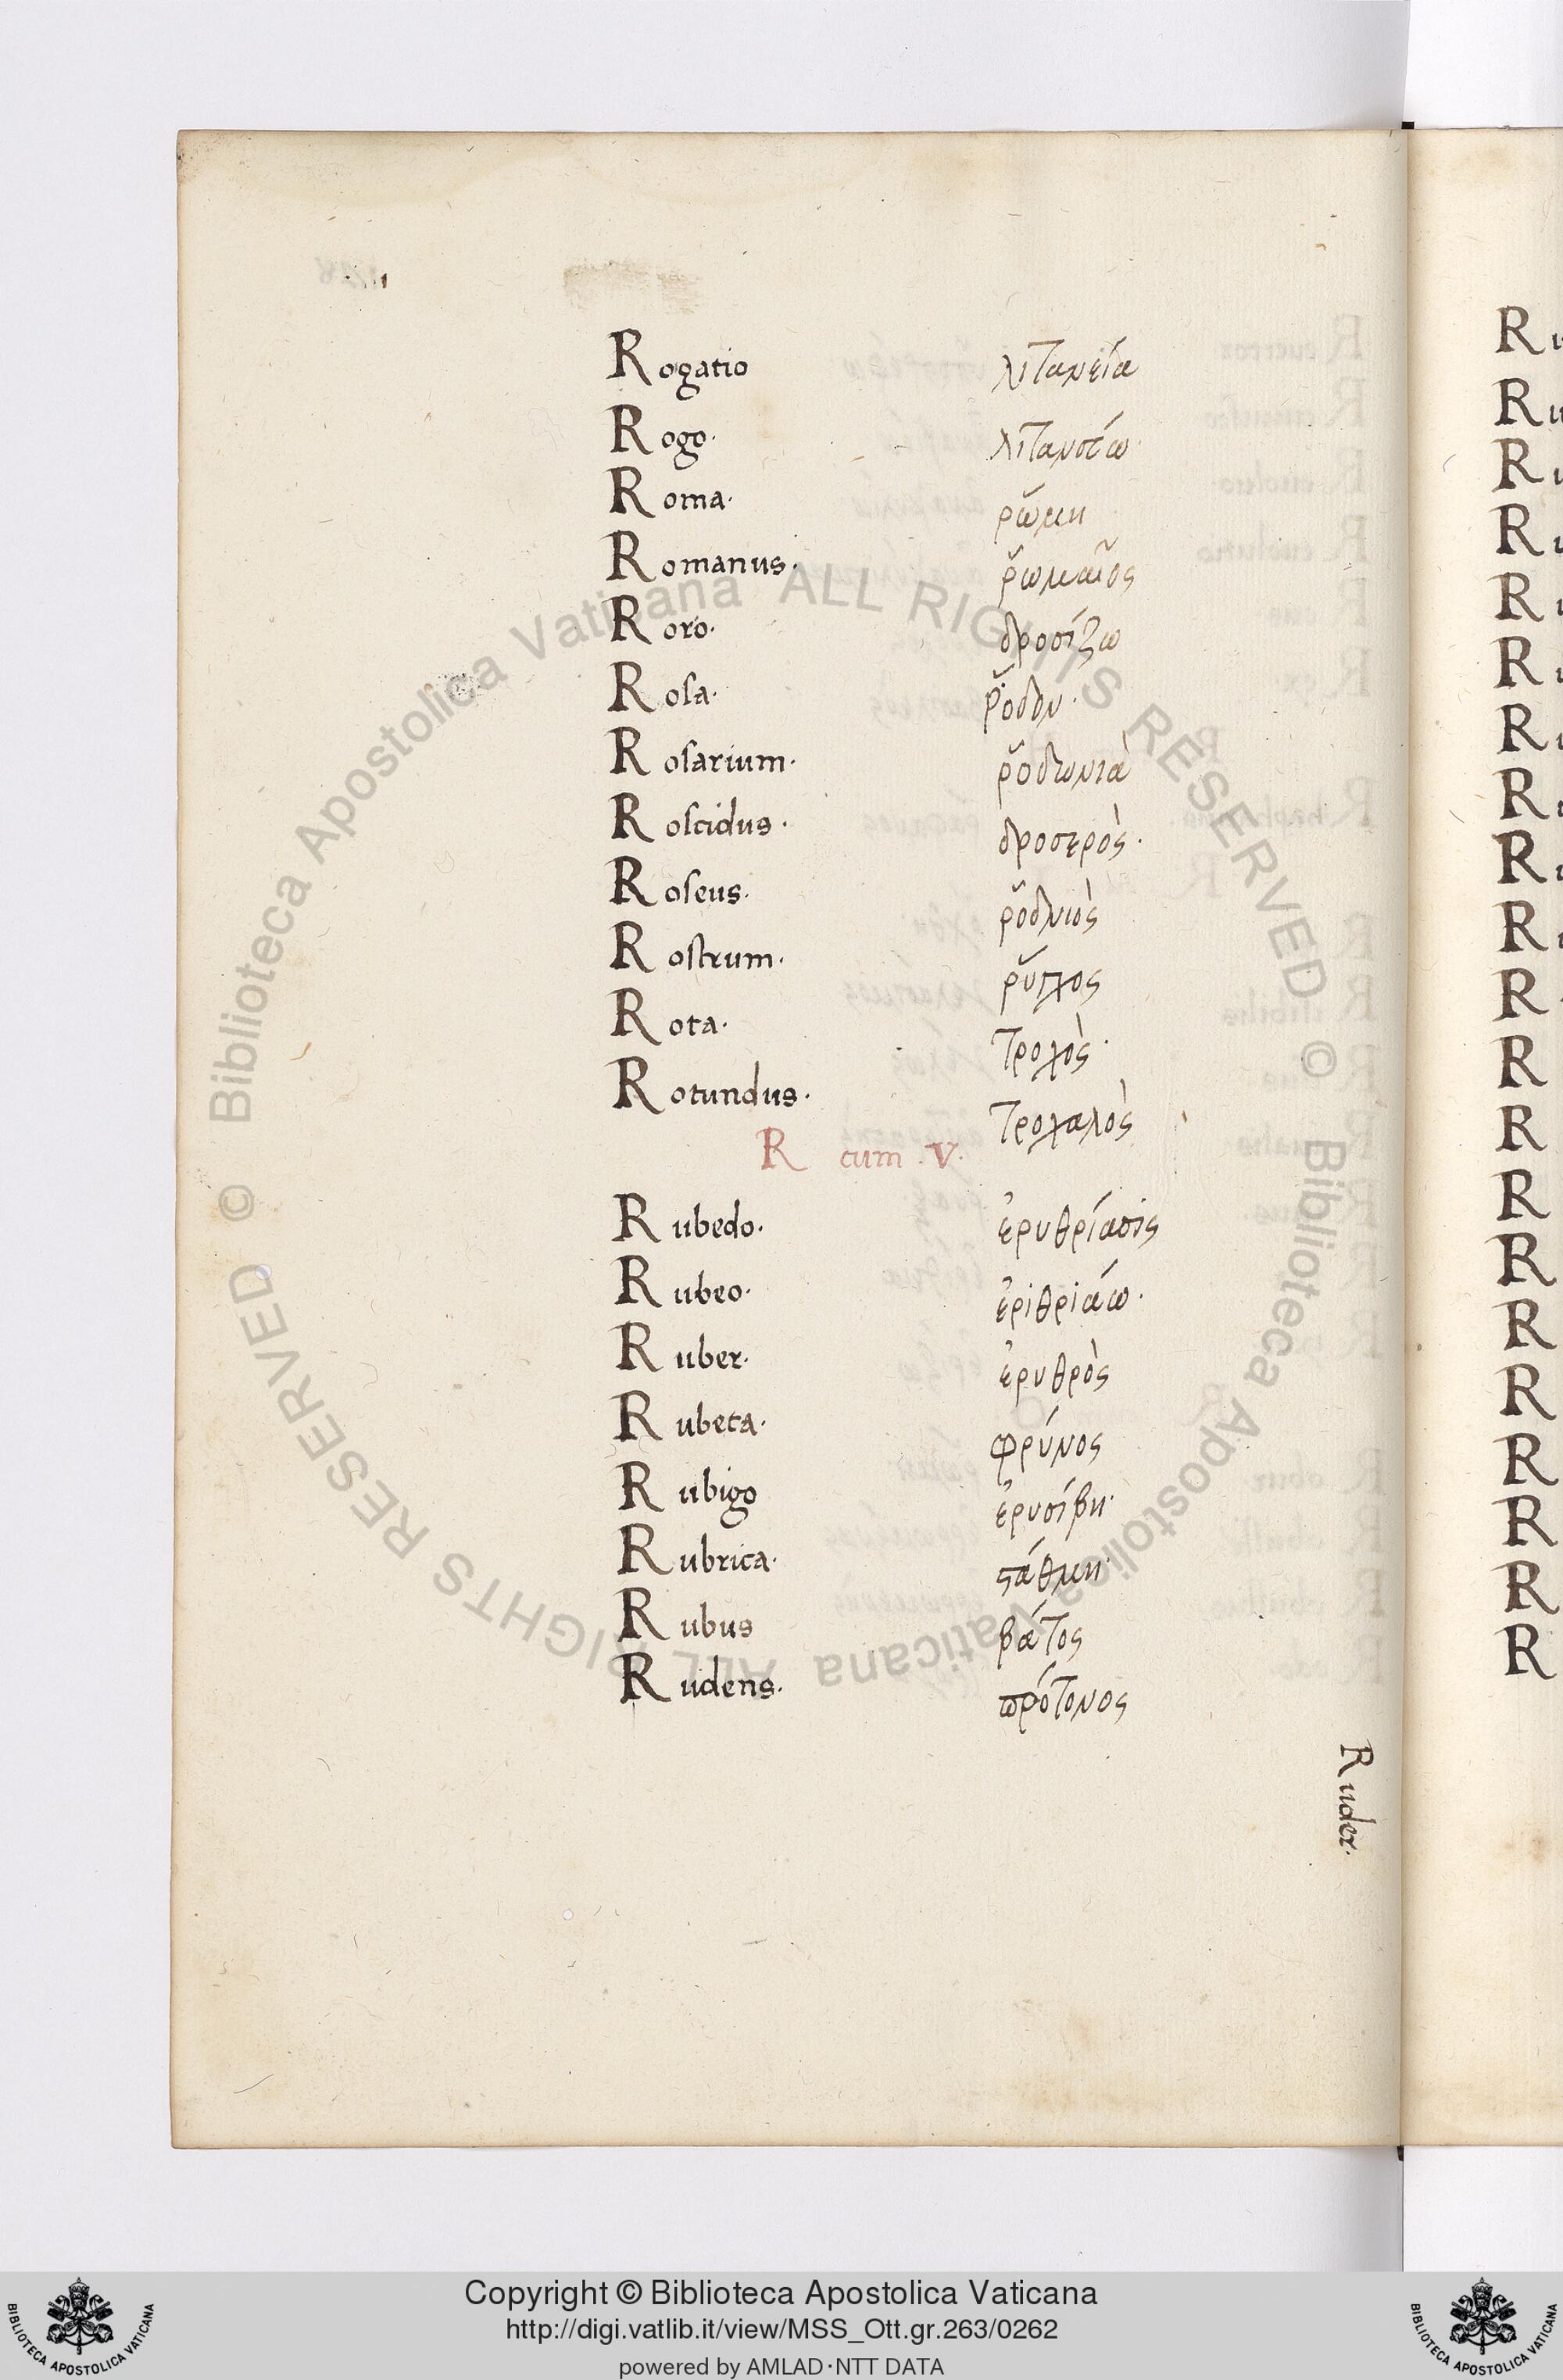 Rogatio λιτανεία
Rogo. λιτανεύω
Roma. ῥώμη
Romanus. ῥωμαῖος
Roro. δροσίζω
Rosa. ῥόδον.
Rosarium. ῥοδωνιὰ
Roscidus. δροσερὸς.
Roseus.
Rostrum. ῥύγχος
Rota. τροχὸς.
Rotundus. τροχαλὸς
R cum .V.
Rubedo. ἐρυθρίασις
Rubeo. ἐριθριάω.
Ruber. ἐρυθρὸς
Rubeta. φρύνος
Rubigo ἐρυσίβη.
Rubrica. στάθμη.
Rubus βάτος
Rudens. πρότονος
Ruder.
© Biblioteca Apostolica Vaticana ALL RIGHTS RESERVED © Biblioteca Apostolica Vaticana ALL RIGHTS RESERVED
Copyright © Biblioteca Apostolica Vaticana
http://digi.vatlib.it/view/MSS_Ott.gr.263/0262
powered by AMLAD·NTT DATA
BIBLIOTECA APOSTOLICA VATICANA
BIBLIOTECA APOSTOLICA VATICANA